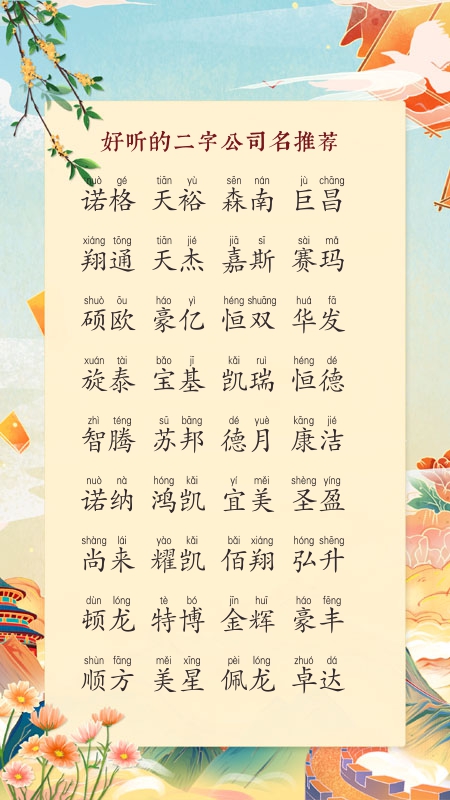 好听的二字公司名推荐
nuò gé tiān yù sēn nán jù chāng
诺格 天裕 森南 巨昌
xiáng tōng tiān jié jiā sī sài mǎ
翔通 天杰 嘉斯 赛玛
shuò ōu háo yì héng shuāng huá fā
硕欧 豪亿 恒双 华发
xuán tài bǎo jī kǎi ruì héng dé
旋泰 宝基 凯瑞 恒德
zhì téng sū bāng dé yuè kāng jié
智腾 苏邦 德月 康洁
nuò nà hóng kǎi yí měi shèng yíng
诺纳 鸿凯 宜美 圣盈
shàng lái yào kǎi bǎi xiáng hóng shēng
尚来 耀凯 佰翔 弘升
dùn lóng tè bó jīn huī háo fēng
顿龙 特博 金辉 豪丰
shùn fāng měi xīng pèi lóng zhuó dá
顺方 美星 佩龙 卓达